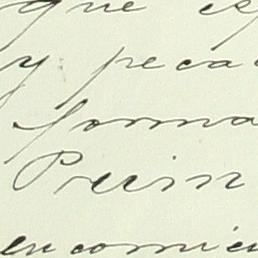 que es
y peca
forma
Prein
encomien